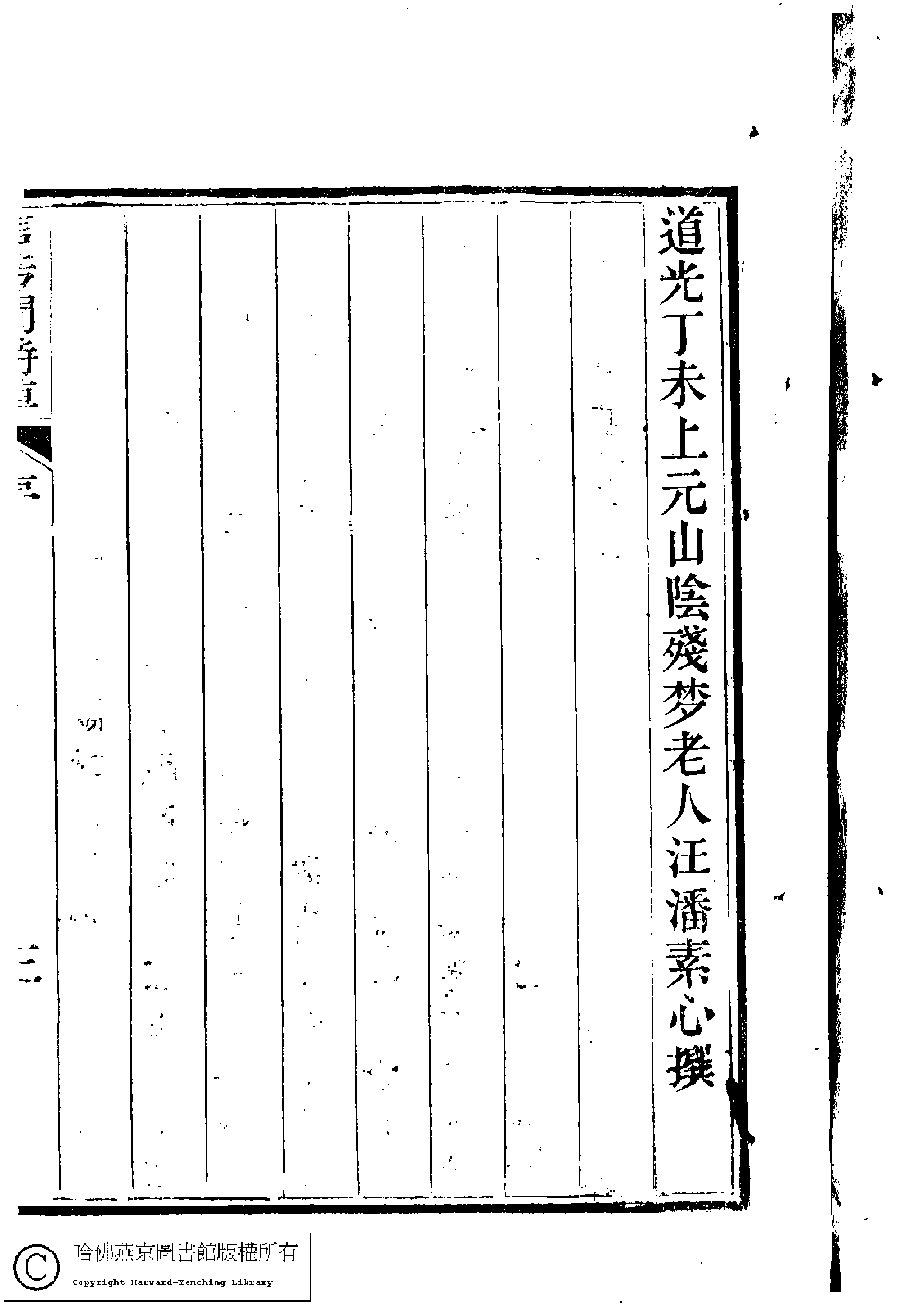 道光丁未上元山陰殘梦老人汪潘素心撰
哈佛燕京圖書館版權所有
Copyright Harvard-Yenching Library